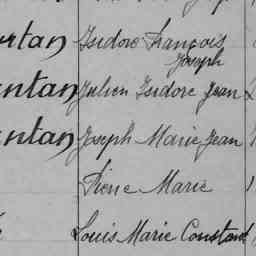 rtan Isidore François
Joseph
ntan Julien Isidore Jean
ntan Joseph Marie Jean
Pierre Marie
Louis Marie Constant